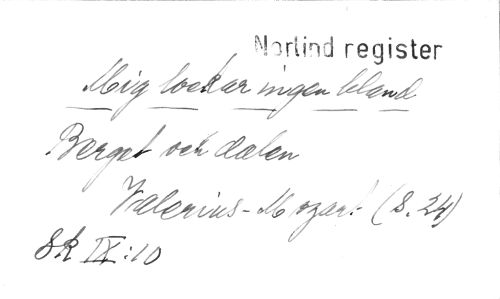 Norlind register
Mig lockar ingen bland
Berget och dalen
Valerius-Mozart (s. 24)
Sk IX:10